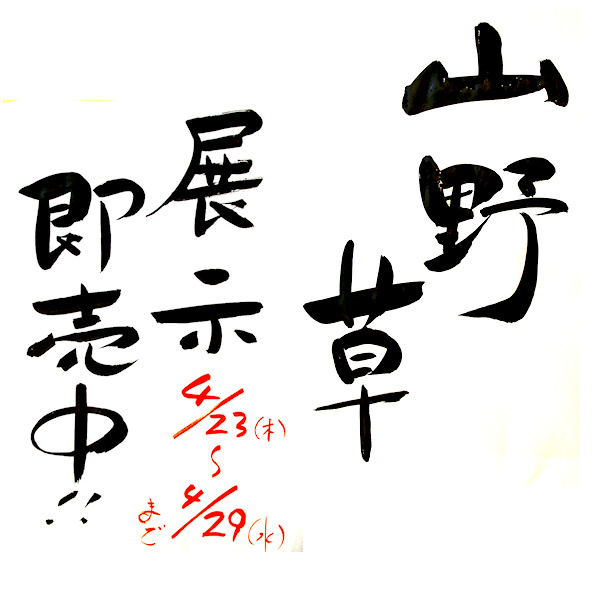 山野草
展示
即売中!!
4/23(木)
〜
4/29(水)
まで